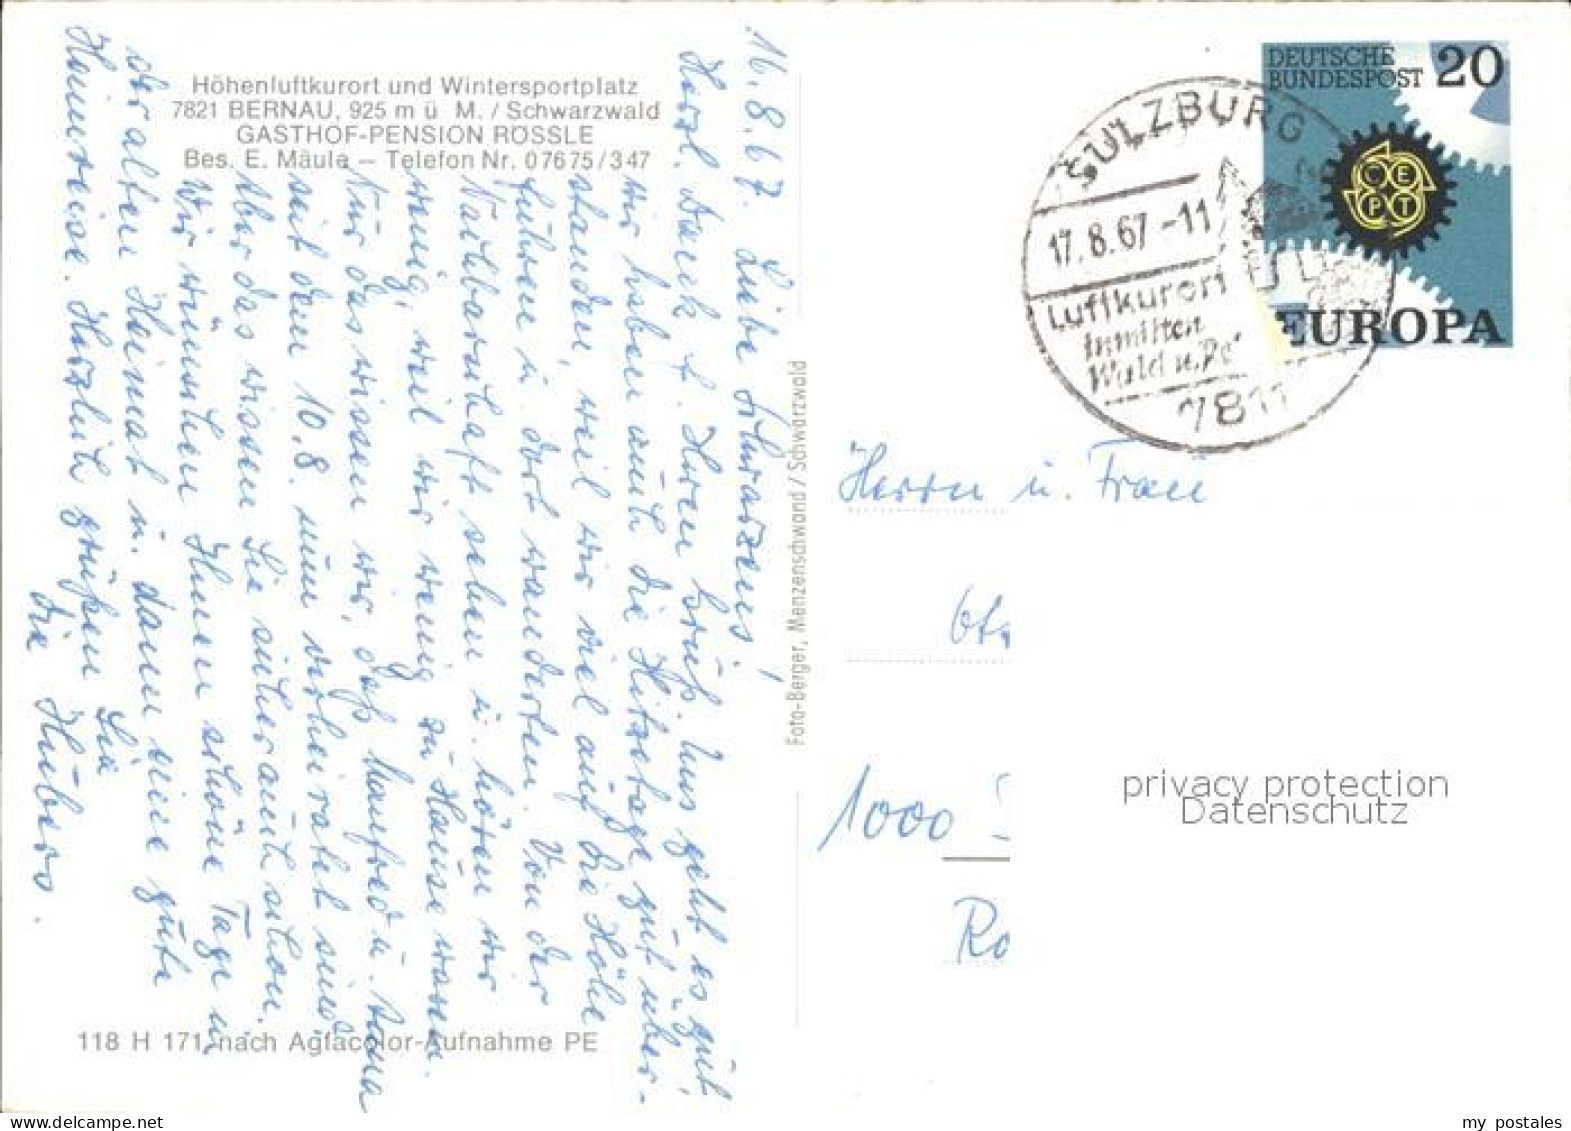 Höhenluftkurort und Wintersportplatz
7821 BERNAU, 925 m ü M. / Schwarzwald
GASTHOF-PENSION RÖSSLE
Bes. E. Mäule – Telefon Nr. 07675/347
16.8.67. Liebe Schwarzens!
Herzl. Dank f. Ihren Gruß. Uns geht es gut
wir haben auch die Hitzetage gut über-
standen, weil wir viel auf die Höhe
fuhren u. dort wanderten. Von der
Nachbarschaft sehen u. hören wir
wenig, weil wir wenig zu Hause waren.
Nur das wissen wir, daß Manfred u.
seit dem 10.8. nun verheiratet sind
Aber das wissen Sie sicher auch schon.
Wir wünschen Ihnen schöne Tage in
der alten Heimat u. dann eine gute
Heimreise. Herzlich grüßen Sie
die Hubers.
118 H 171 nach Agfacolor-Aufnahme PE
Foto-Berger, Menzenschwand / Schwarzwald
DEUTSCHE
BUNDESPOST 20
CEPT
EUROPA
SULZBURG
17.8.67-11
Luftkurort
Inmitten
Wald u.
7811
Herrn u. Frau
1000
privacy protection
Datenschutz
my postales